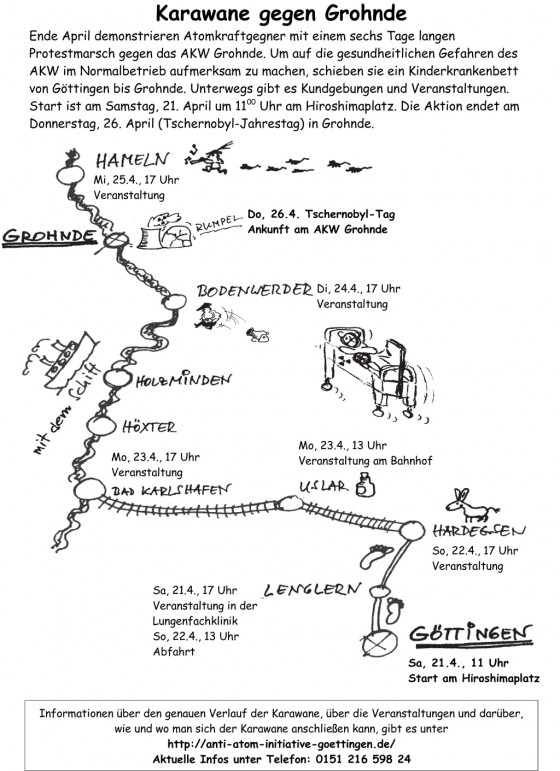 Karawane gegen Grohnde
Ende April demonstrieren Atomkraftgegner mit einem sechs Tage langen
Protestmarsch gegen das AKW Grohnde. Um auf die gesundheitlichen Gefahren des
AKW im Normalbetrieb aufmerksam zu machen, schieben sie ein Kinderkrankenbett
von Göttingen bis Grohnde. Unterwegs gibt es Kundgebungen und Veranstaltungen.
Start ist am Samstag, 21. April um 11⁰⁰ Uhr am Hiroshimaplatz. Die Aktion endet am
Donnerstag, 26. April (Tschernobyl-Jahrestag) in Grohnde.
HAMELN
Mi, 25.4., 17 Uhr
Veranstaltung
GROHNDE
RUMPEL
Do, 26.4. Tschernobyl-Tag
Ankunft am AKW Grohnde
BODENWERDER
Di, 24.4., 17 Uhr
Veranstaltung
mit dem Schiff
HOLZMINDEN
HÖXTER
Mo, 23.4., 17 Uhr
Veranstaltung
BAD KARLSHAFEN
Mo, 23.4., 13 Uhr
Veranstaltung am Bahnhof
USLAR
HARDEGSEN
So, 22.4., 17 Uhr
Veranstaltung
LENGLERN
Sa, 21.4., 17 Uhr
Veranstaltung in der
Lungenfachklinik
So, 22.4., 13 Uhr
Abfahrt
GÖTTINGEN
Sa, 21.4., 11 Uhr
Start am Hiroshimaplatz
Informationen über den genauen Verlauf der Karawane, über die Veranstaltungen und darüber,
wie und wo man sich der Karawane anschließen kann, gibt es unter
http://anti-atom-initiative-goettingen.de/
Aktuelle Infos unter Telefon: 0151 216 598 24